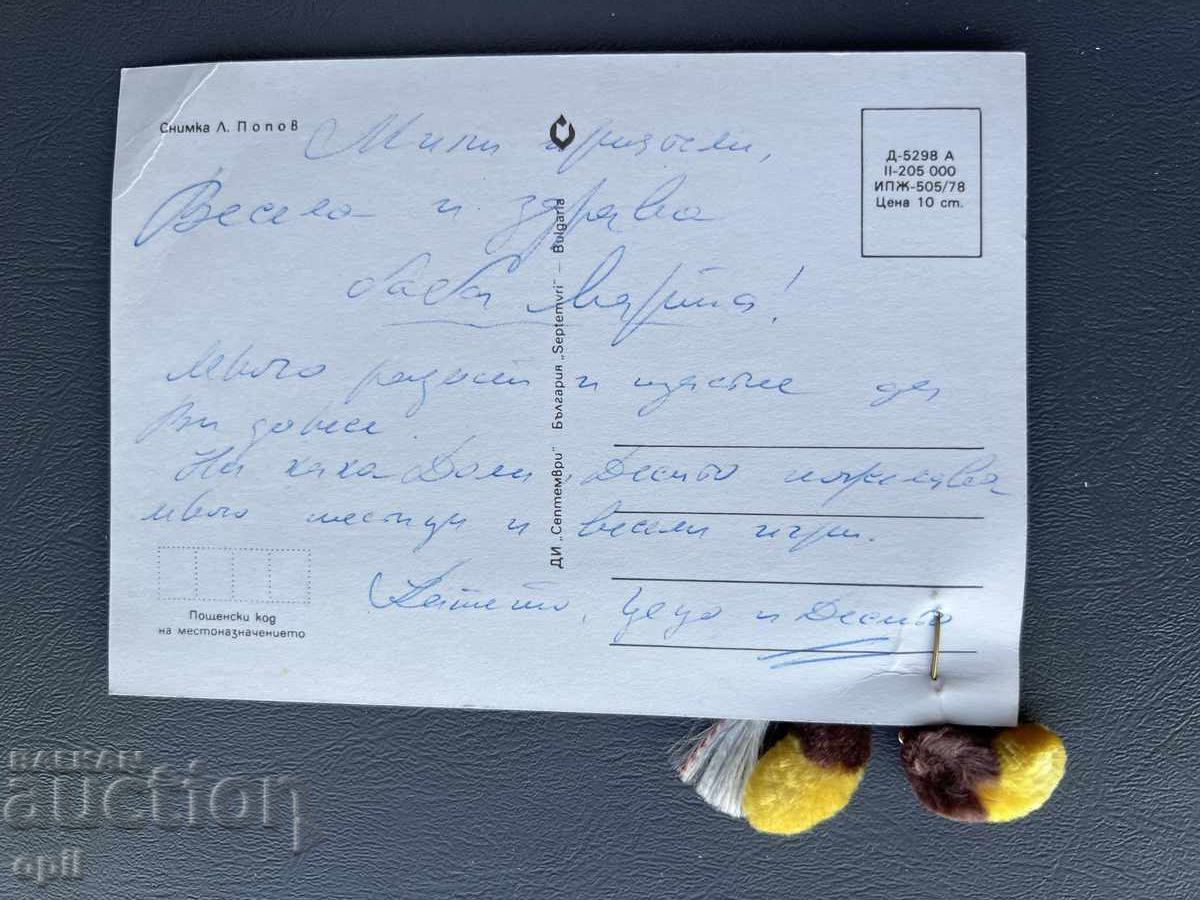 Снимка Л. Попов
Мили приятели,
Весела и здрава
баба Марта!
Много радост и щастие да
Ви донесе.
На кака Доли, Десито пожелава
много петици и весели игри.
Катето, Цецо и Десито
Д-5298 А
II-205 000
ИПЖ-505/78
Цена 10 ст.
ДИ „Септември" България „Septemvri" — Bulgaria
Пощенски код
на местоназначението
BALKAN
auction
opil